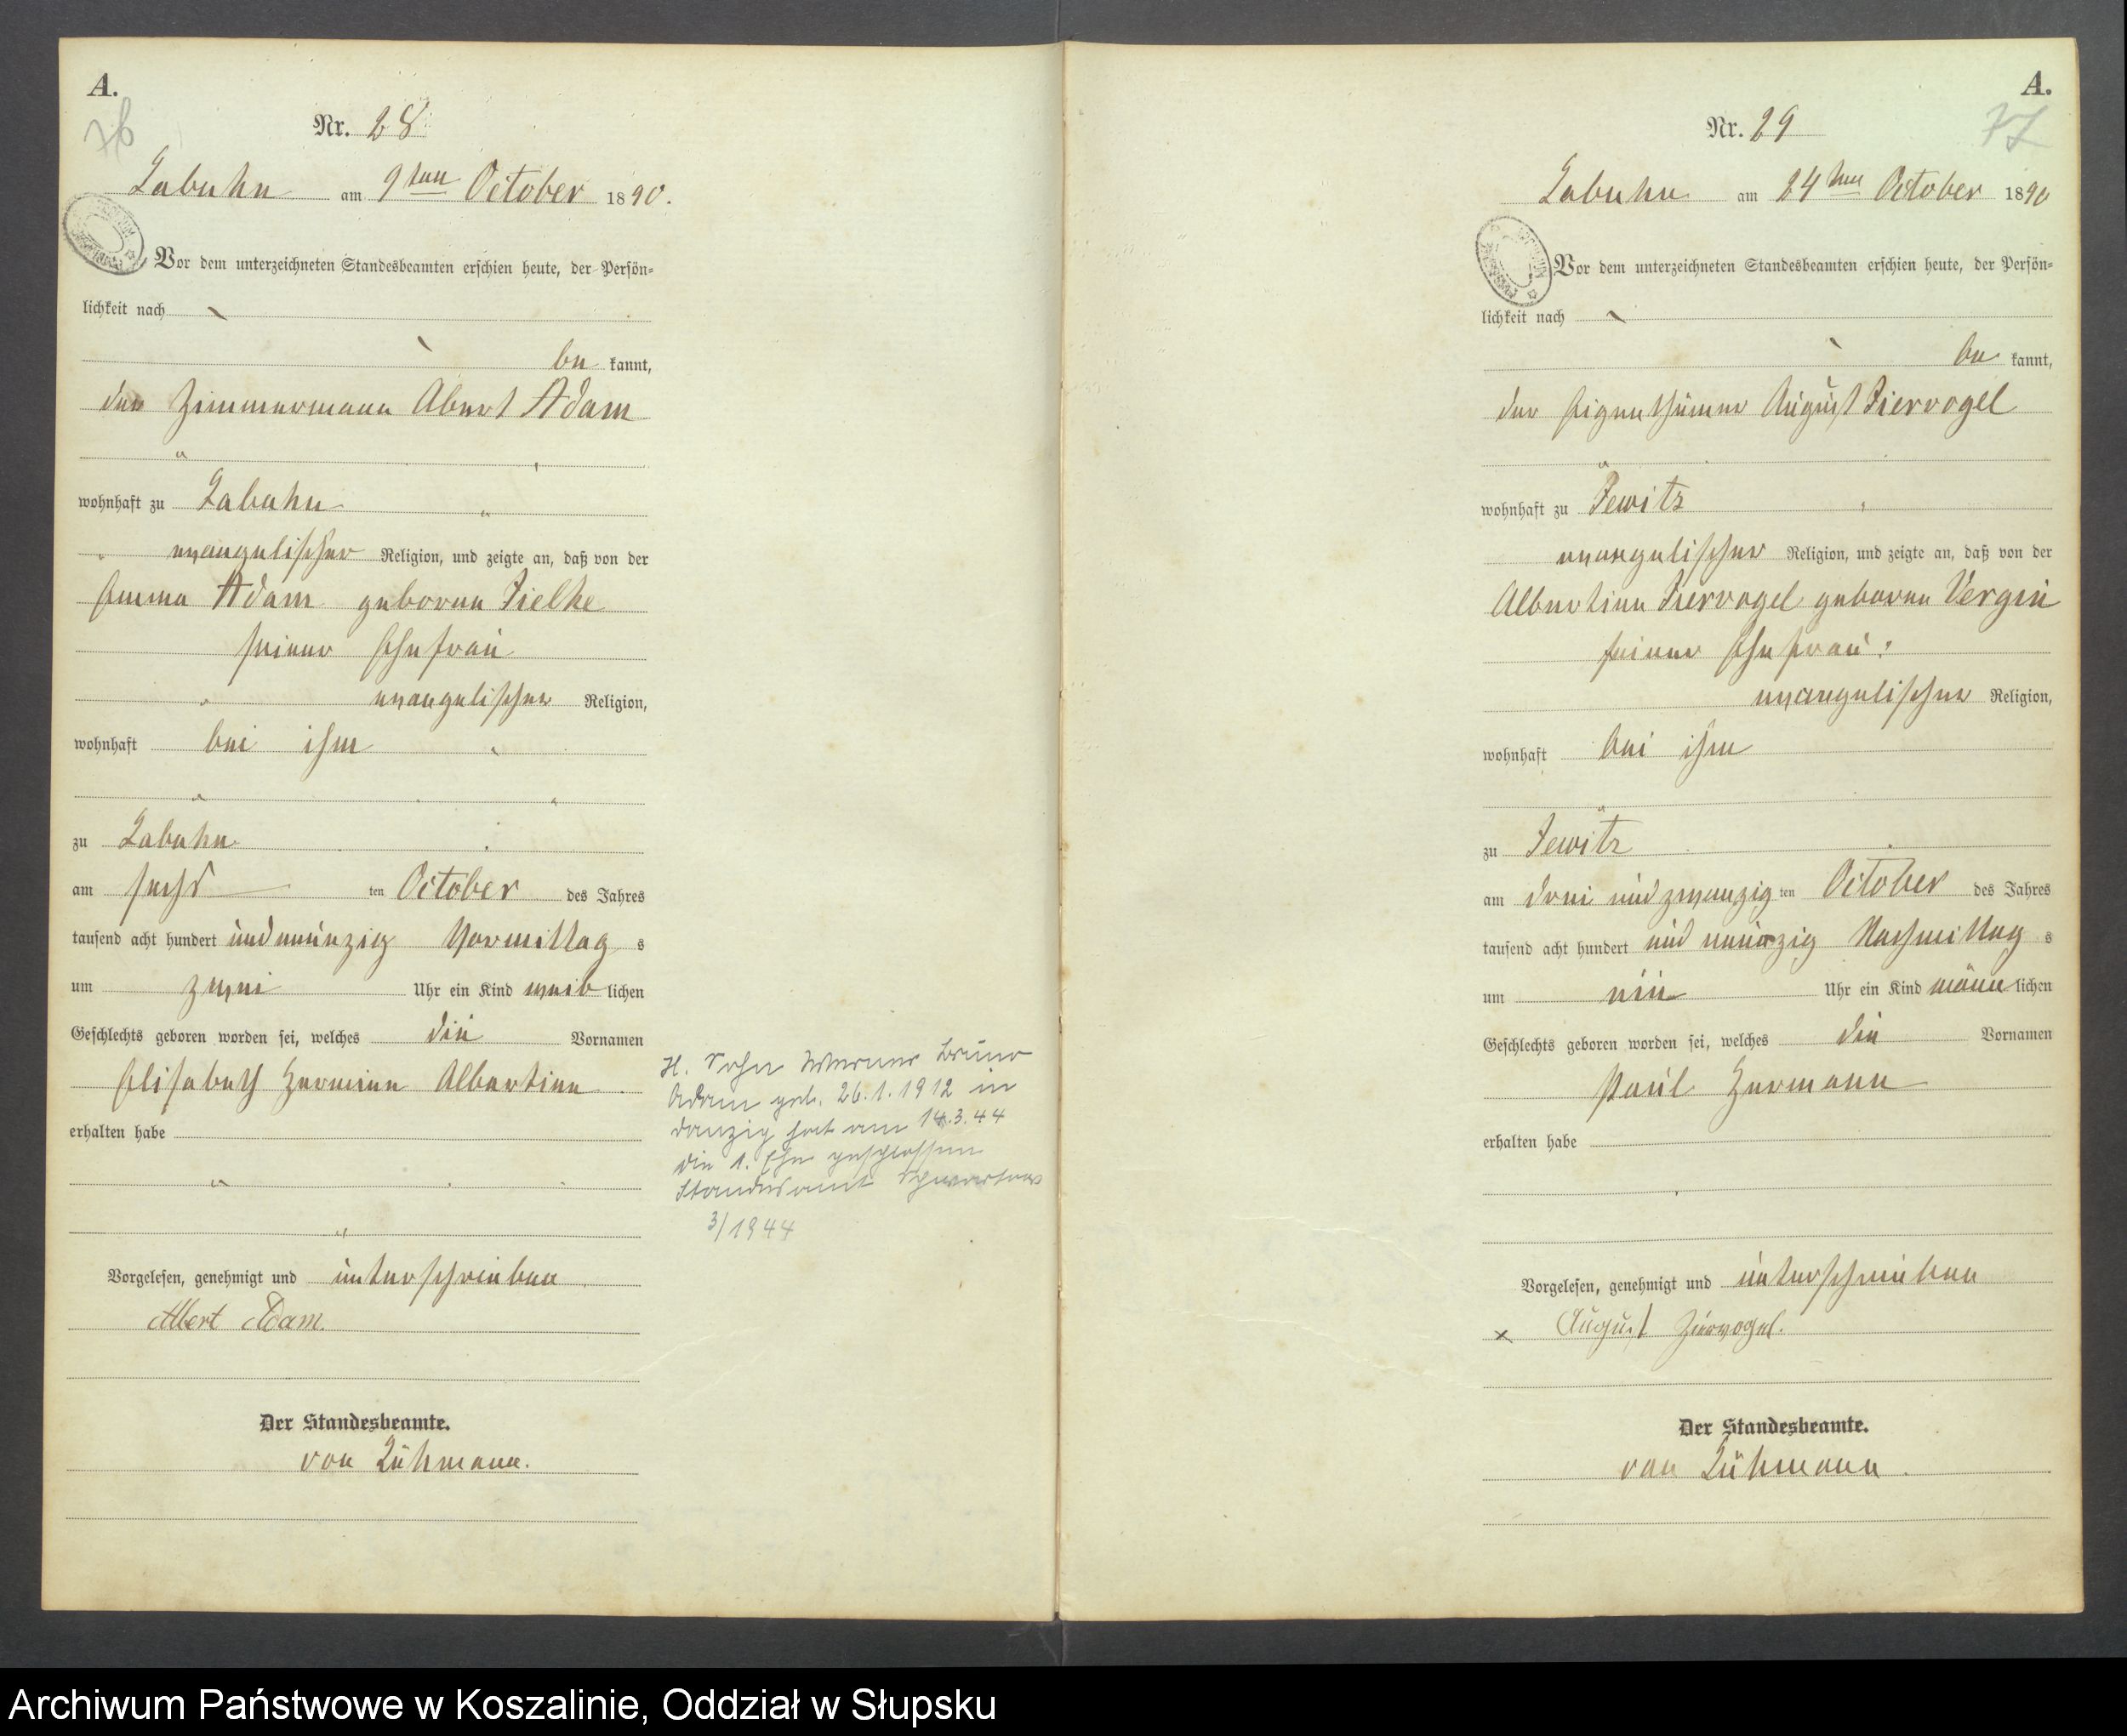 A.
76
Nr. 28
Labuhn am 9ten October 1890.
Vor dem unterzeichneten Standesbeamten erschien heute, der Persön=
lichkeit nach
be kannt,
der Zimmermann Abert Adam
wohnhaft zu Labuhn
evangelischer Religion, und zeigte an, daß von der
Emma Adam geborene Zielke
seiner Ehefrau
evangelischer Religion,
wohnhaft bei ihm
zu Labuhn
am sechs ten October des Jahres
tausend acht hundert und neunzig Vormittag s
um zwei Uhr ein Kind weib lichen
Geschlechts geboren worden sei, welches die Vornamen
Elisabeth Hermine Albertine
erhalten habe
Vorgelesen, genehmigt und unterschrieben
Albert Adam.
Der Standesbeamte.
von Lühmann.
H. Sohn Werner Bruno
Adam geb. 26.1.1912 in
Danzig hat am 14.3.44
die 1. Ehe geschlossen
Standesamt
3/1944
A.
77
Nr. 29
Labuhn am 24ten October 1890
Vor dem unterzeichneten Standesbeamten erschien heute, der Persön=
lichkeit nach
be kannt,
der Eigenthümer August Ziervogel
wohnhaft zu Jewitz
evangelischer Religion, und zeigte an, daß von der
Albertine Ziervogel geborene Vergin
seiner Ehefrau
evangelischer Religion,
wohnhaft bei ihm
zu Jewitz
am drei und zwanzig ten October des Jahres
tausend acht hundert und neunzig Nachmittag s
um ein Uhr ein Kind männ lichen
Geschlechts geboren worden sei, welches die Vornamen
Paul Hermann
erhalten habe
Vorgelesen, genehmigt und unterschrieben
x August Ziervogel.
Der Standesbeamte.
von Lühmann.
Archiwum Państwowe w Koszalinie, Oddział w Słupsku